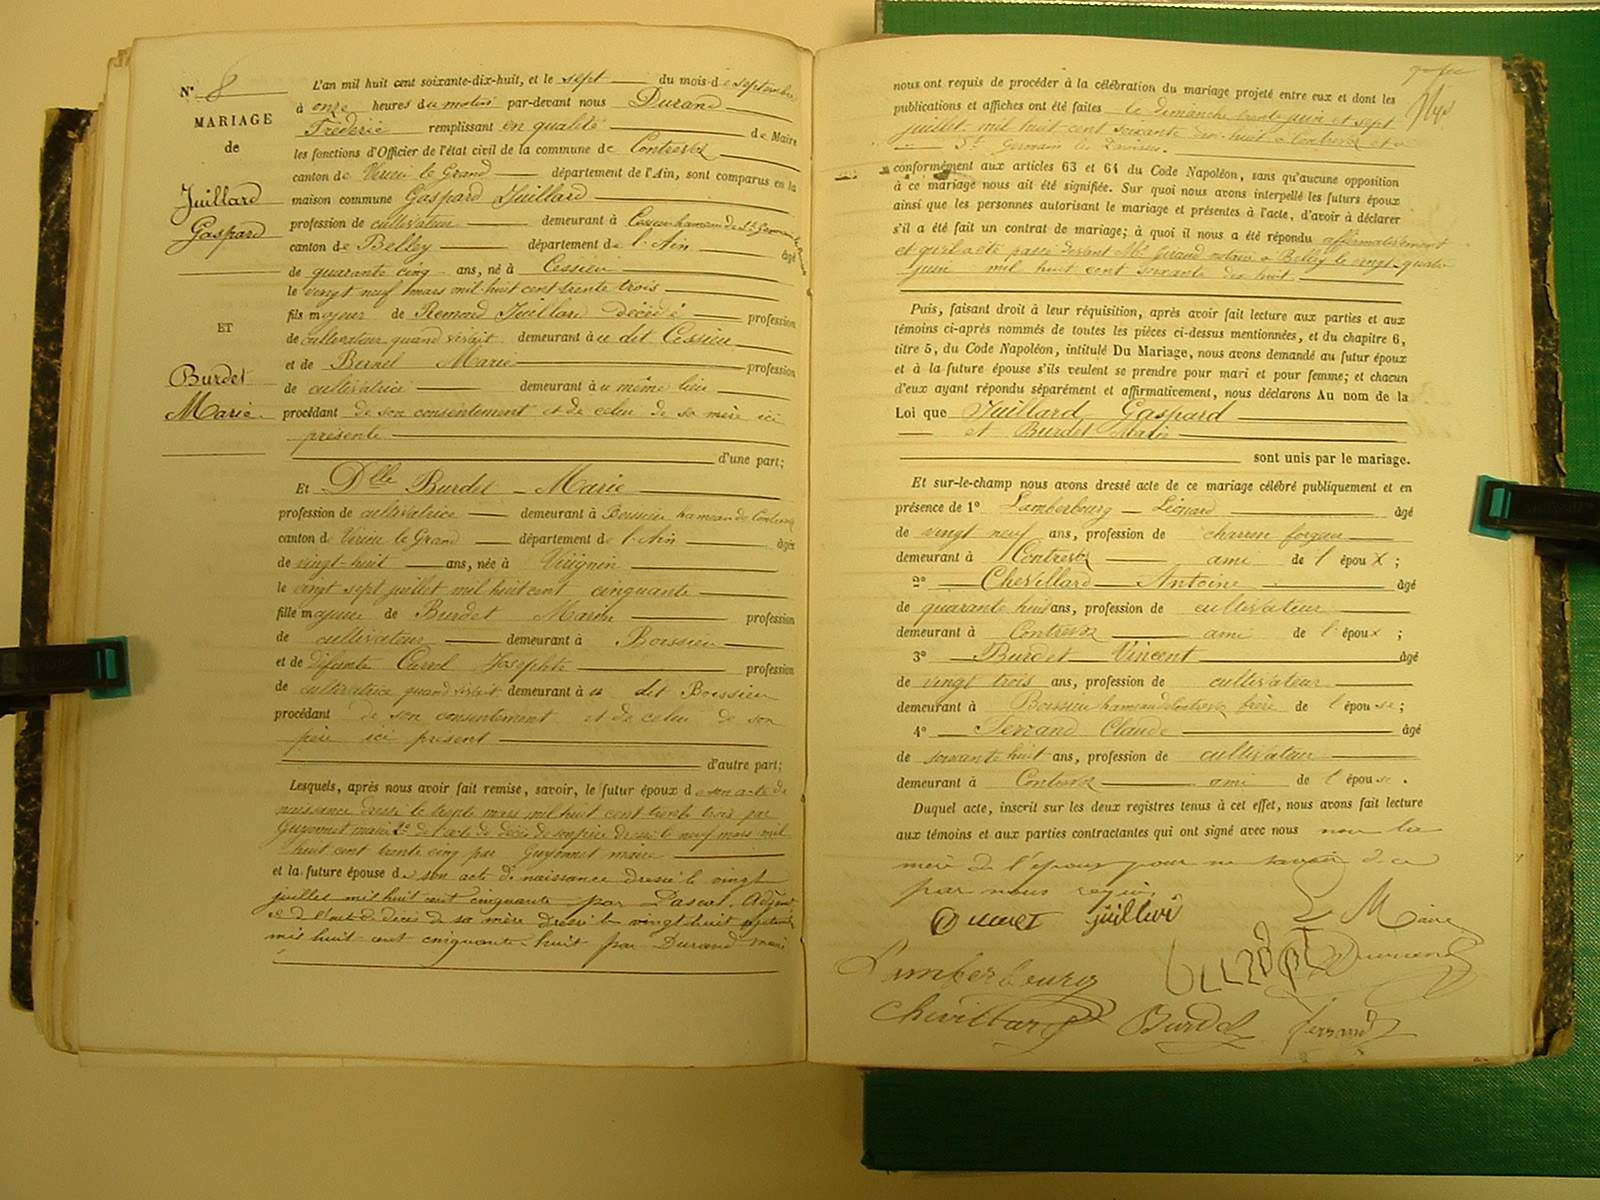 N° 8
MARIAGE
de
Juillard
Gaspard
ET
Burdet
Marie
L'an mil huit cent soixante-dix-huit, et le sept du mois de septembre
à onze heures du matin par-devant nous Durand
Fréderic remplissant en qualité de Maire
les fonctions d'Officier de l'état civil de la commune de Contrevoz
canton de Virieu le Grand département de l'Ain, sont comparus en la
maison commune Gaspard Juillard
profession de cultivateur demeurant à Cessieu hameau de St Germain les
canton de Belley département de l'Ain âgé
de quarante cinq ans, né à Cessieu
le vingt neuf mars mil huit cent trente trois
fils majeur de Remond Juillard décédé profession
de cultivateur quand vivait demeurant au dit Cessieu
et de Marie profession
de cultivatrice demeurant au même lieu
procédant de son consentement et de celui de sa mère ici
présente
d'une part;
Et Dlle Burdet Marie
profession de cultivatrice demeurant à Boissieu hameau de Contrevoz
canton de Virieu le Grand département de l'Ain âgée
de vingt-huit ans, née à Virignin
le vingt sept juillet mil huit cent cinquante
fille majeure de Burdet Marin profession
de cultivateur demeurant à Boissieu
et de défunte Josephte profession
de cultivatrice quand vivait demeurant au dit Boissieu
procédant de son consentement et de celui de son
père ici présent
d'autre part;
Lesquels, après nous avoir fait remise, savoir, le futur époux de son acte de
naissance dressé le trente mars mil huit cent trente trois par
Guyonnet maire 2° de l'acte de décès de son père dressé le neuf mars mil
huit cent trente cinq par Guyonnet maire
et la future épouse de son acte de naissance dressé le vingt
juillet mil huit cent cinquante par Pascal Adjoint
et de l'acte de décès de sa mère dressé le vingt huit
mil huit cent cinquante-huit par Durand maire
nous ont requis de procéder à la célébration du mariage projeté entre eux et dont les
publications et affiches ont été faites le dimanche trente juin et sept
juillet mil huit cent soixante dix huit à Contrevoz et à
St Germain les Paroisses.
conformément aux articles 63 et 64 du Code Napoléon, sans qu'aucune opposition
à ce mariage nous ait été signifiée. Sur quoi nous avons interpellé les futurs époux
ainsi que les personnes autorisant le mariage et présentes à l'acte, d'avoir à déclarer
s'il a été fait un contrat de mariage; à quoi il nous a été répondu affirmativement
et qu'il a été passé devant Me Girand notaire à Belley le vingt-quatre
juin mil huit cent soixante dix huit.
Puis, faisant droit à leur réquisition, après avoir fait lecture aux parties et aux
témoins ci-après nommés de toutes les pièces ci-dessus mentionnées, et du chapitre 6,
titre 5, du Code Napoléon, intitulé Du Mariage, nous avons demandé au futur époux
et à la future épouse s'ils veulent se prendre pour mari et pour femme; et chacun
d'eux ayant répondu séparément et affirmativement, nous déclarons Au nom de la
Loi que Juillard Gaspard
et Burdet Marie
sont unis par le mariage.
Et sur-le-champ nous avons dressé acte de ce mariage célébré publiquement et en
présence de 1° Lamberbourg Léonard âgé
de vingt neuf ans, profession de charron forgeur
demeurant à Contrevoz ami de l'époux;
2° Chevillard Antoine âgé
de quarante huit ans, profession de cultivateur
demeurant à Contrevoz ami de l'époux;
3° Burdet Vincent âgé
de vingt trois ans, profession de cultivateur
demeurant à Boissieu hameau de Contrevoz frère de l'épouse;
4° Ferrand Claude âgé
de soixante huit ans, profession de cultivateur
demeurant à Contrevoz ami de l'épouse.
Duquel acte, inscrit sur les deux registres tenus à cet effet, nous avons fait lecture
aux témoins et aux parties contractantes qui ont signé avec nous non la
mère de l'époux pour ne savoir de ce
par nous requis
Le Maire
Burdet juillard
Lamberbourg Burdet Durand
Chevillard Burdet ferrand